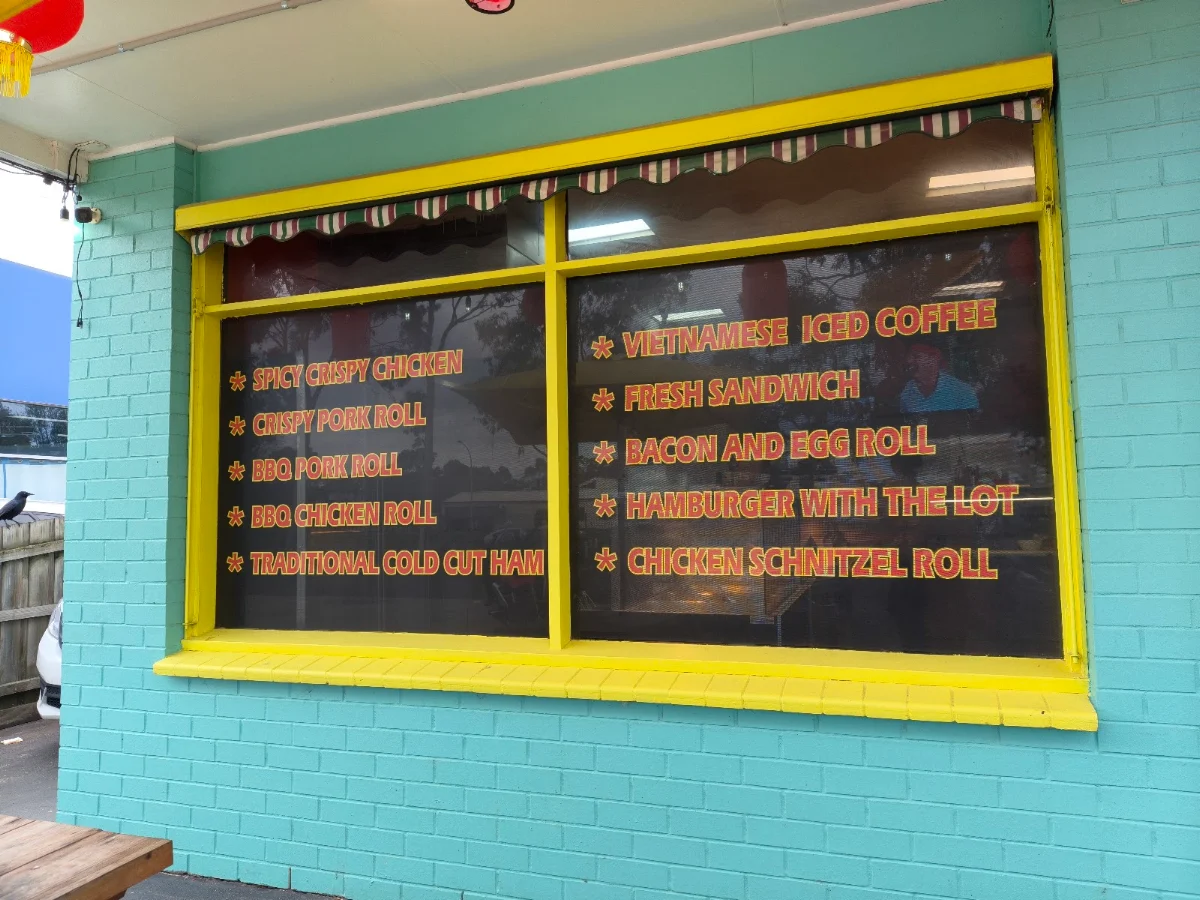 * SPICY CRISPY CHICKEN
* CRISPY PORK ROLL
* BBQ PORK ROLL
* BBQ CHICKEN ROLL
* TRADITIONAL COLD CUT HAM
* VIETNAMESE ICED COFFEE
* FRESH SANDWICH
* BACON AND EGG ROLL
* HAMBURGER WITH THE LOT
* CHICKEN SCHNITZEL ROLL